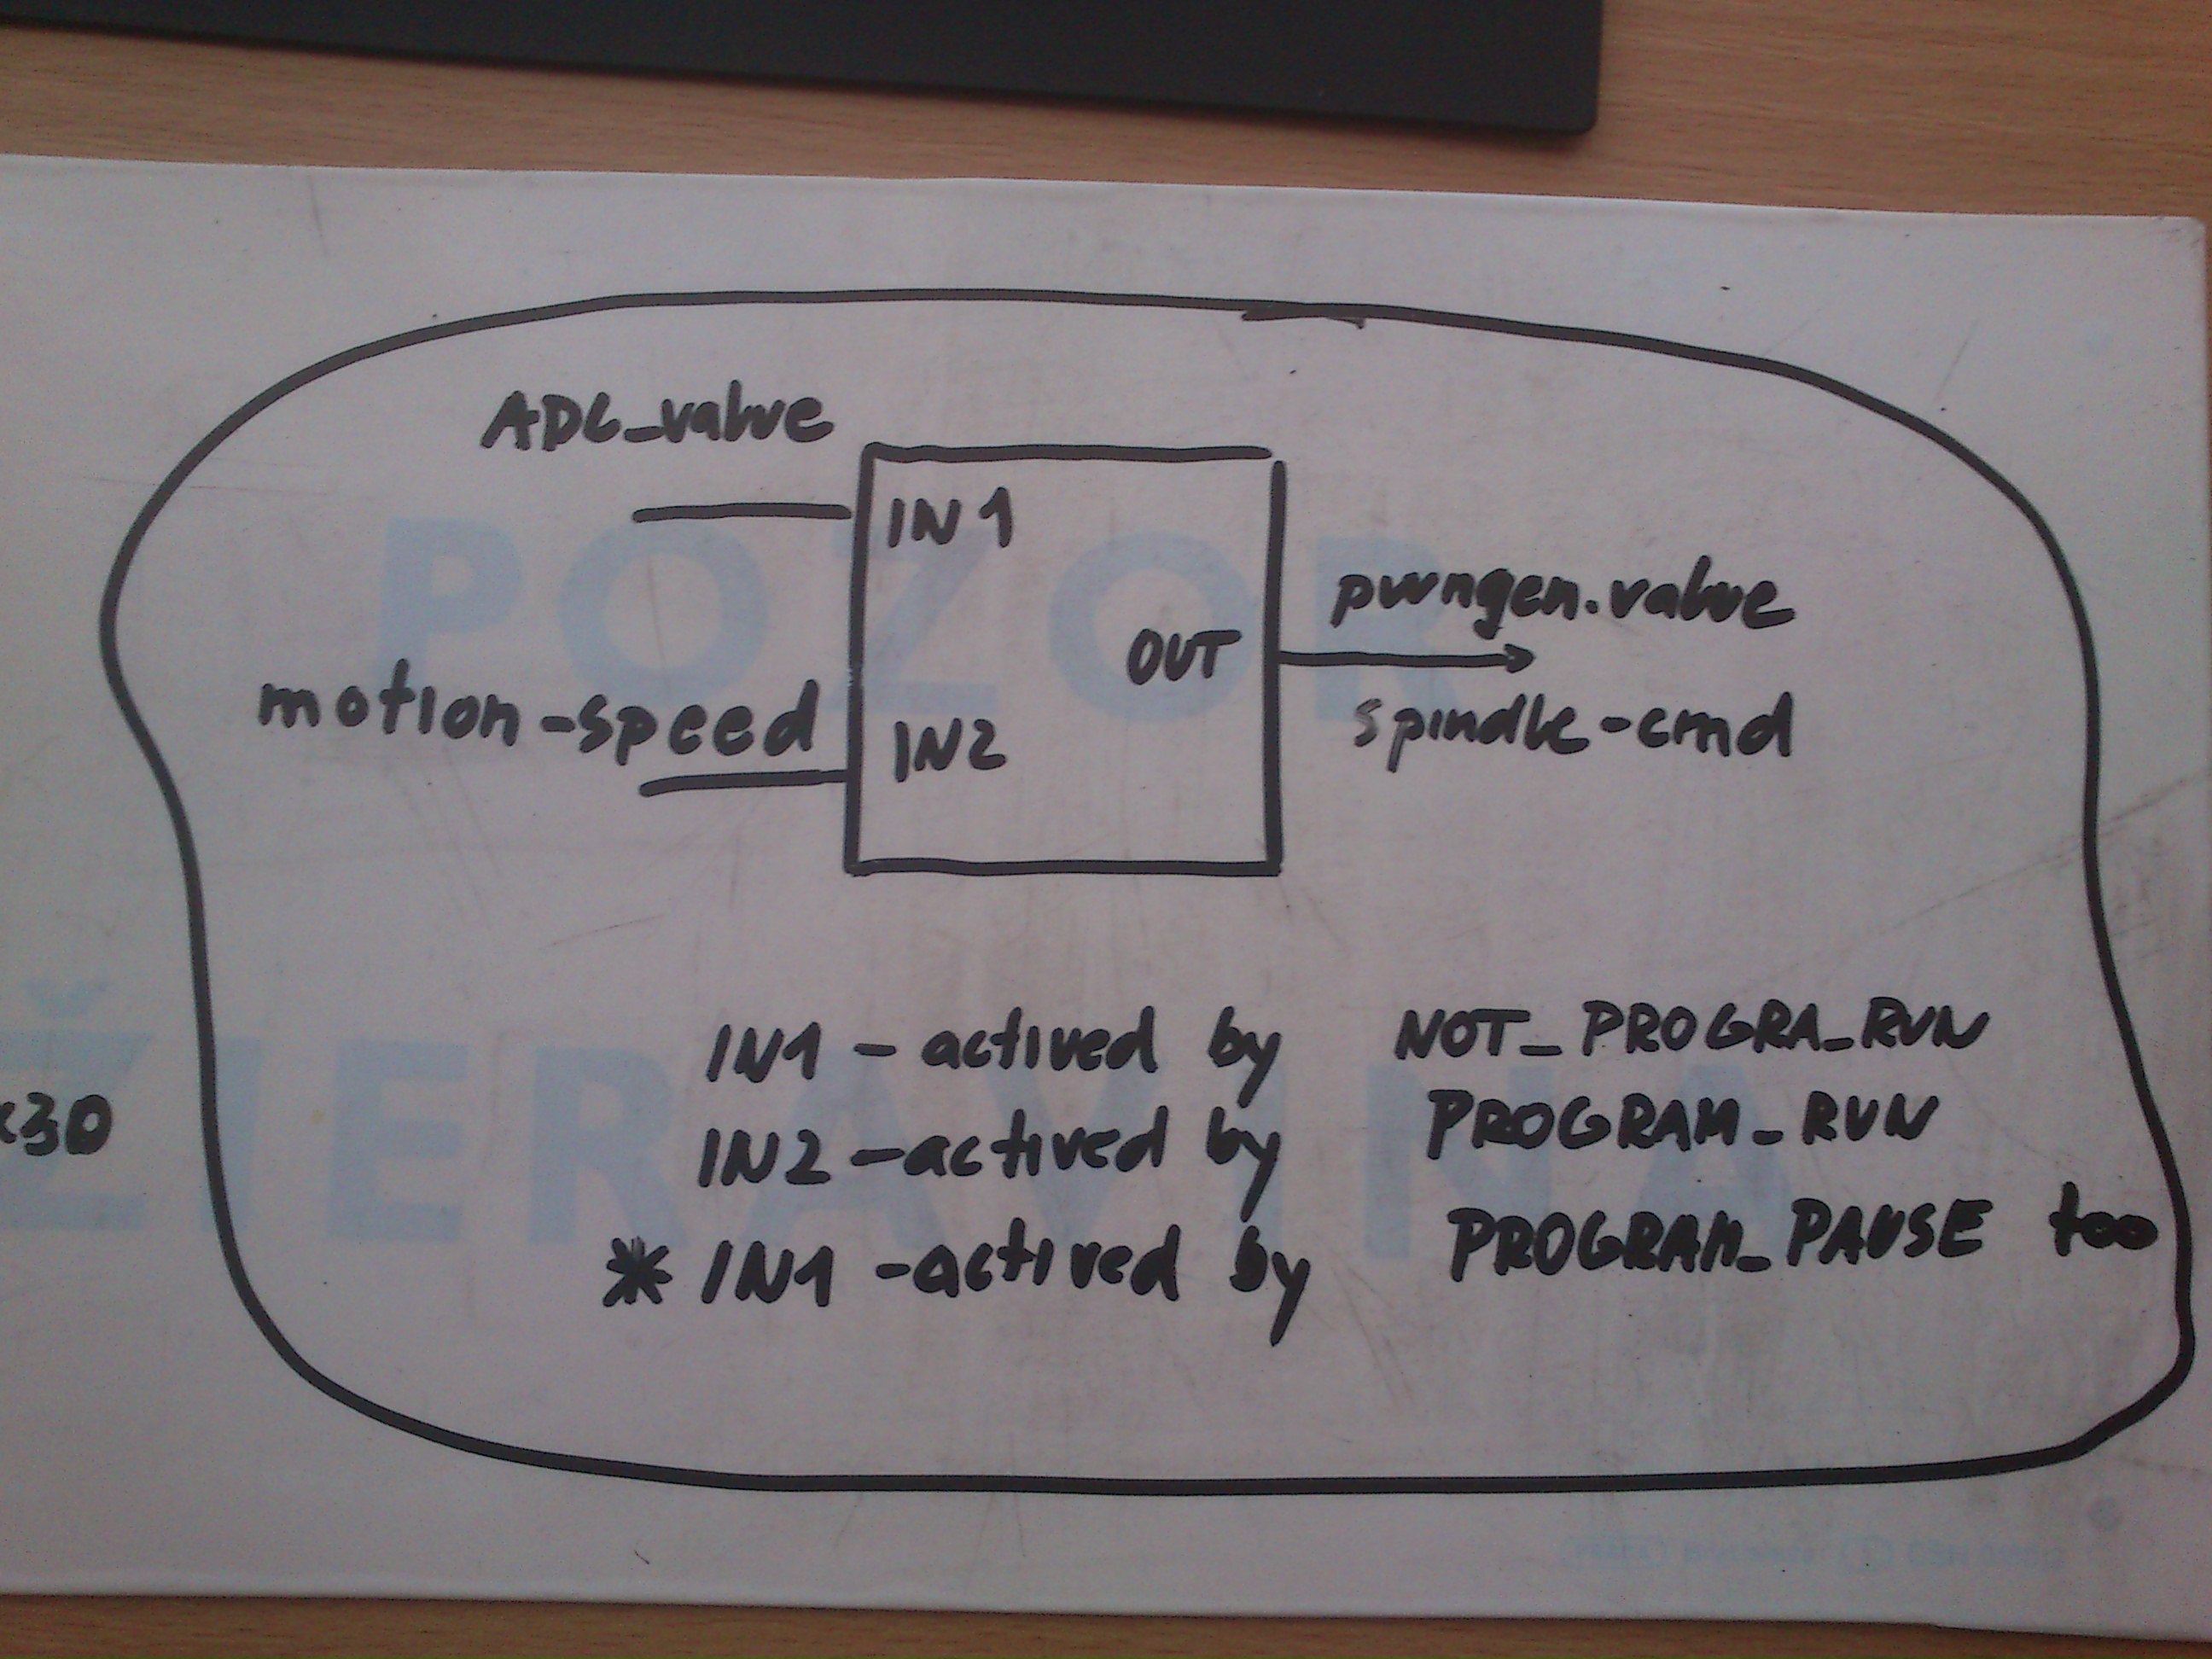 ADC_value
IN1
POZOR
pwmgen.value
OUT
motion-speed
spindle-cmd
IN2
IN1 - actived by NOT_PROGRA_RUN
ŽIERAVINA
x30
IN2 - actived by PROGRAM_RUN
* IN1 - actived by PROGRAM_PAUSE too